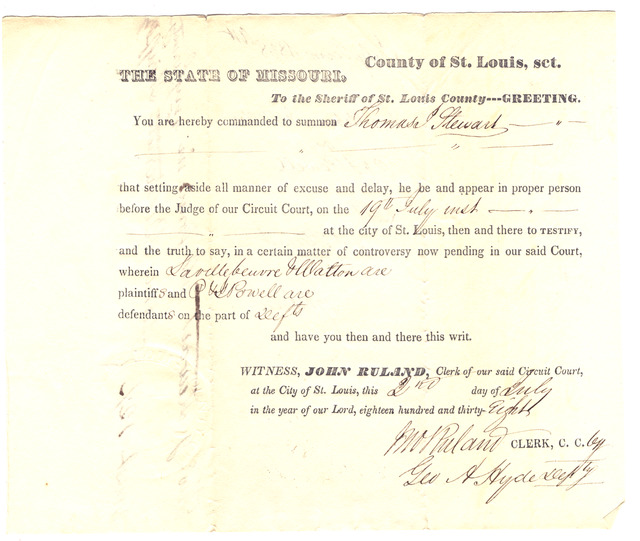 County of St. Louis, sct.
THE STATE OF MISSOURI.
To the Sheriff of St. Louis County---GREETING.
You are hereby commanded to summon Thomas J Stewart — " —
— " — " —
that setting aside all manner of excuse and delay, he be and appear in proper person
before the Judge of our Circuit Court, on the 19th July inst — " —
— " — at the city of St. Louis, then and there to TESTIFY,
and the truth to say, in a certain matter of controversy now pending in our said Court,
wherein & Walton are
plaintiffs and P & J Powell are
defendants on the part of Defts
and have you then and there this writ.
WITNESS, JOHN RULAND, Clerk of our said Circuit Court,
at the City of St. Louis, this 2nd day of July
in the year of our Lord, eighteen hundred and thirty-Eight
Jno Ruland CLERK, C. C. by
Geo A Hyde Depty